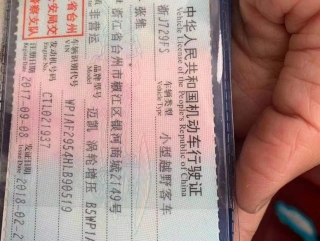 中华人民共和国机动车行驶证
Vehicle License of the People's Republic of China
浙J729FS
车辆类型 小型越野客车
Vehicle Type
张惟
浙江省台州市椒江区银河商城2149号
非营运
品牌型号 迈凯 涡轮增压 B5WP1A
Model
省台州
安局交
警察支队
车辆识别代号 WP1AF2954HLB90519
VIN
发动机号码 CTL021937
Engine No.
注册日期 2017-09-08
发证日期 2018-02-2